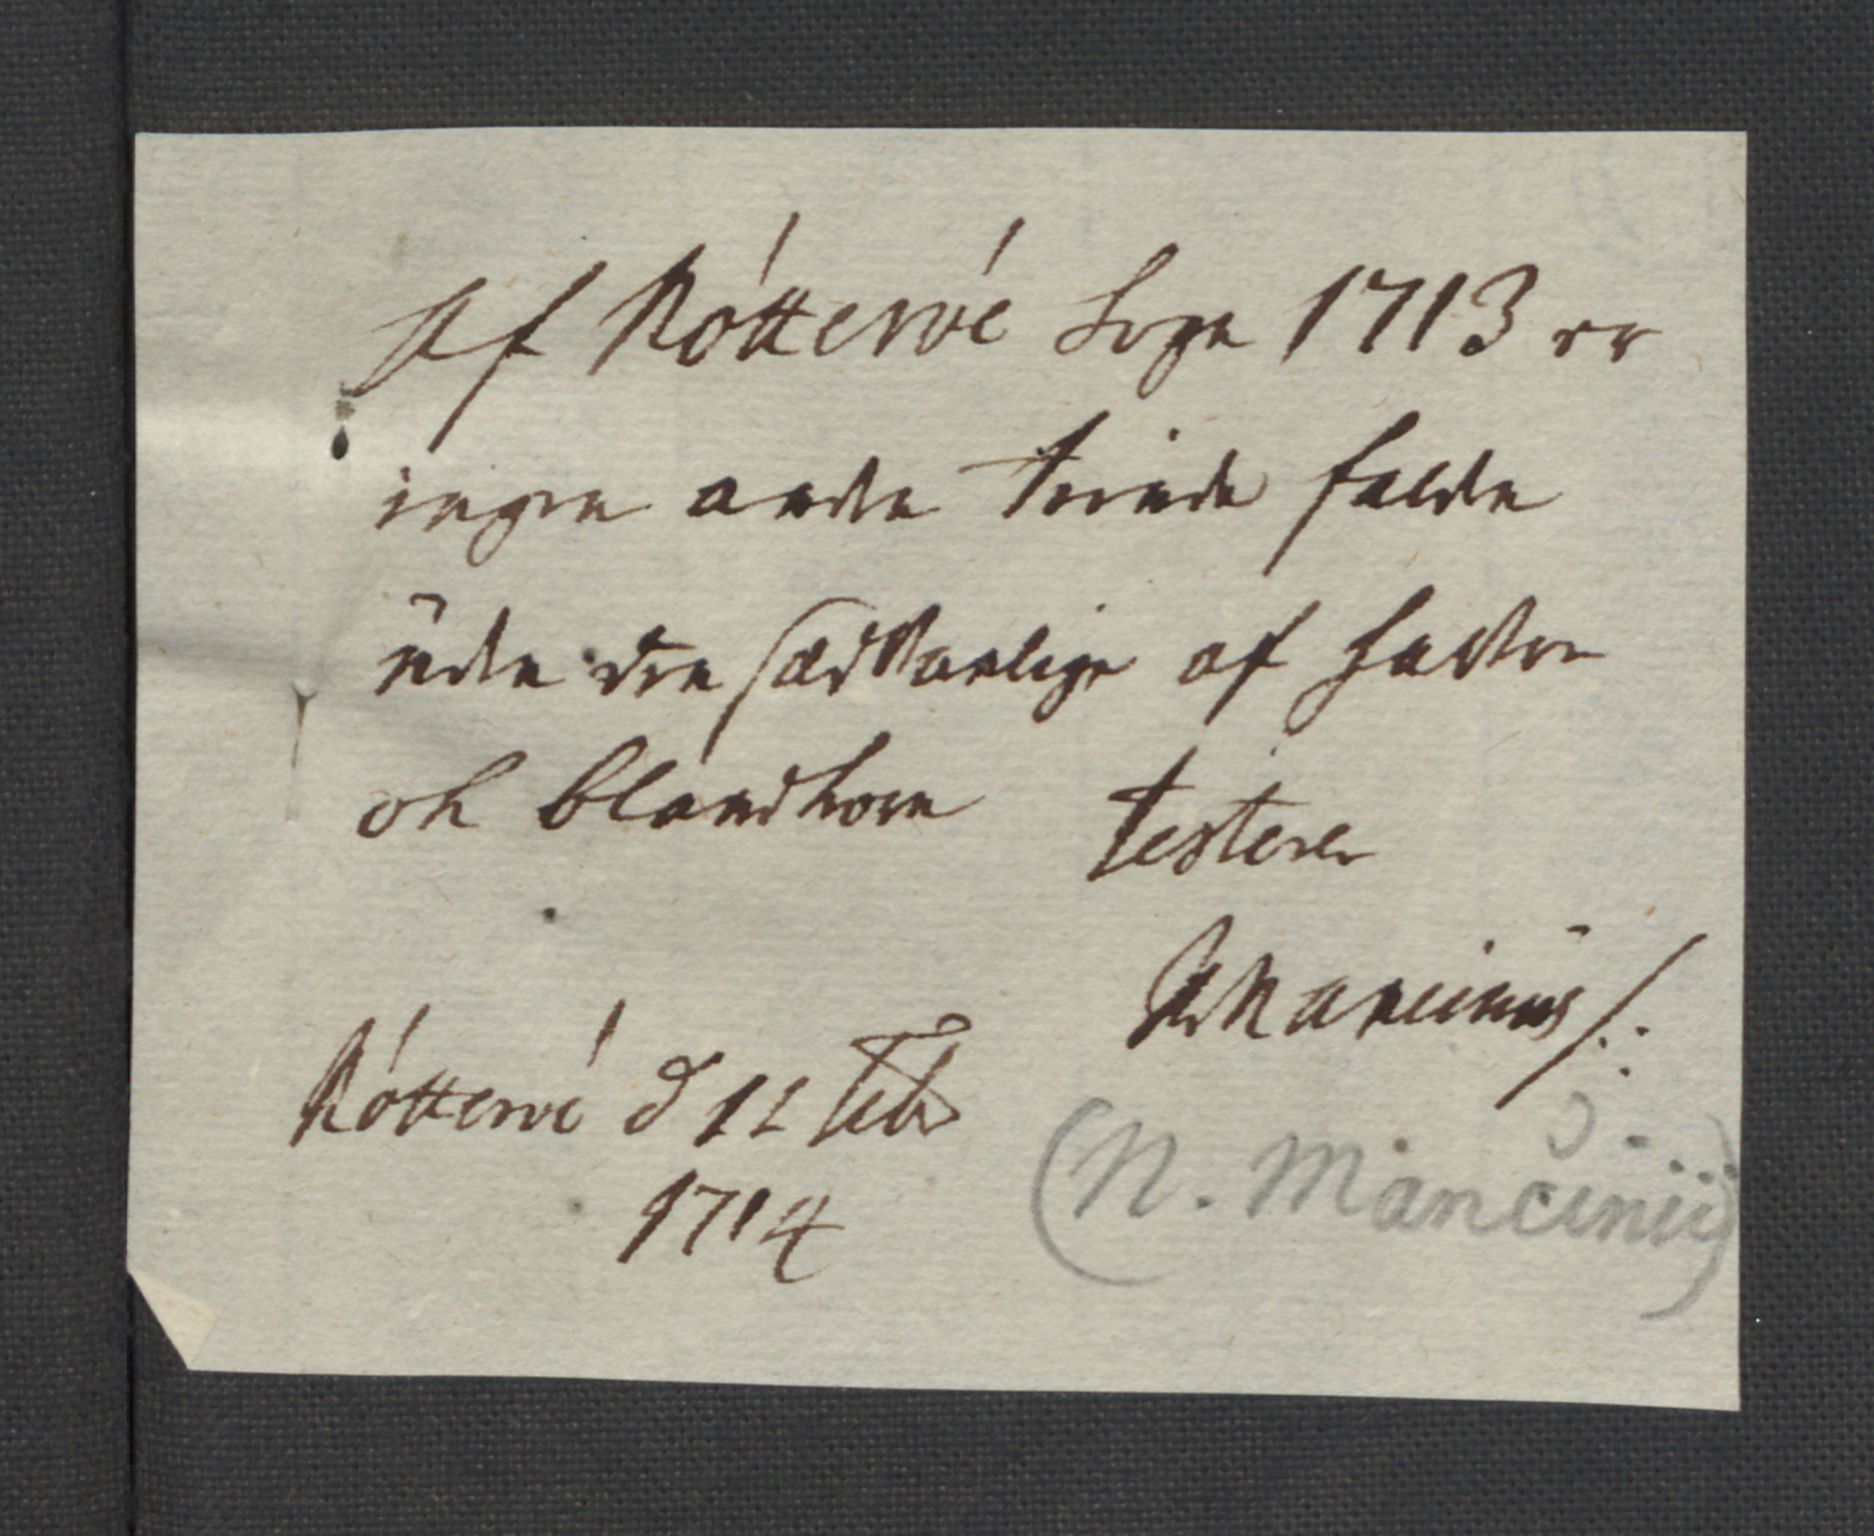 Af Róttervé Sogn 1713 er
ingen anden tiende falden
uden den sædvanlige af Hafren
ok blandkorn testerer
NMancinus /.
Róttervé d 12 Feb
1714
(N. Mancinii)